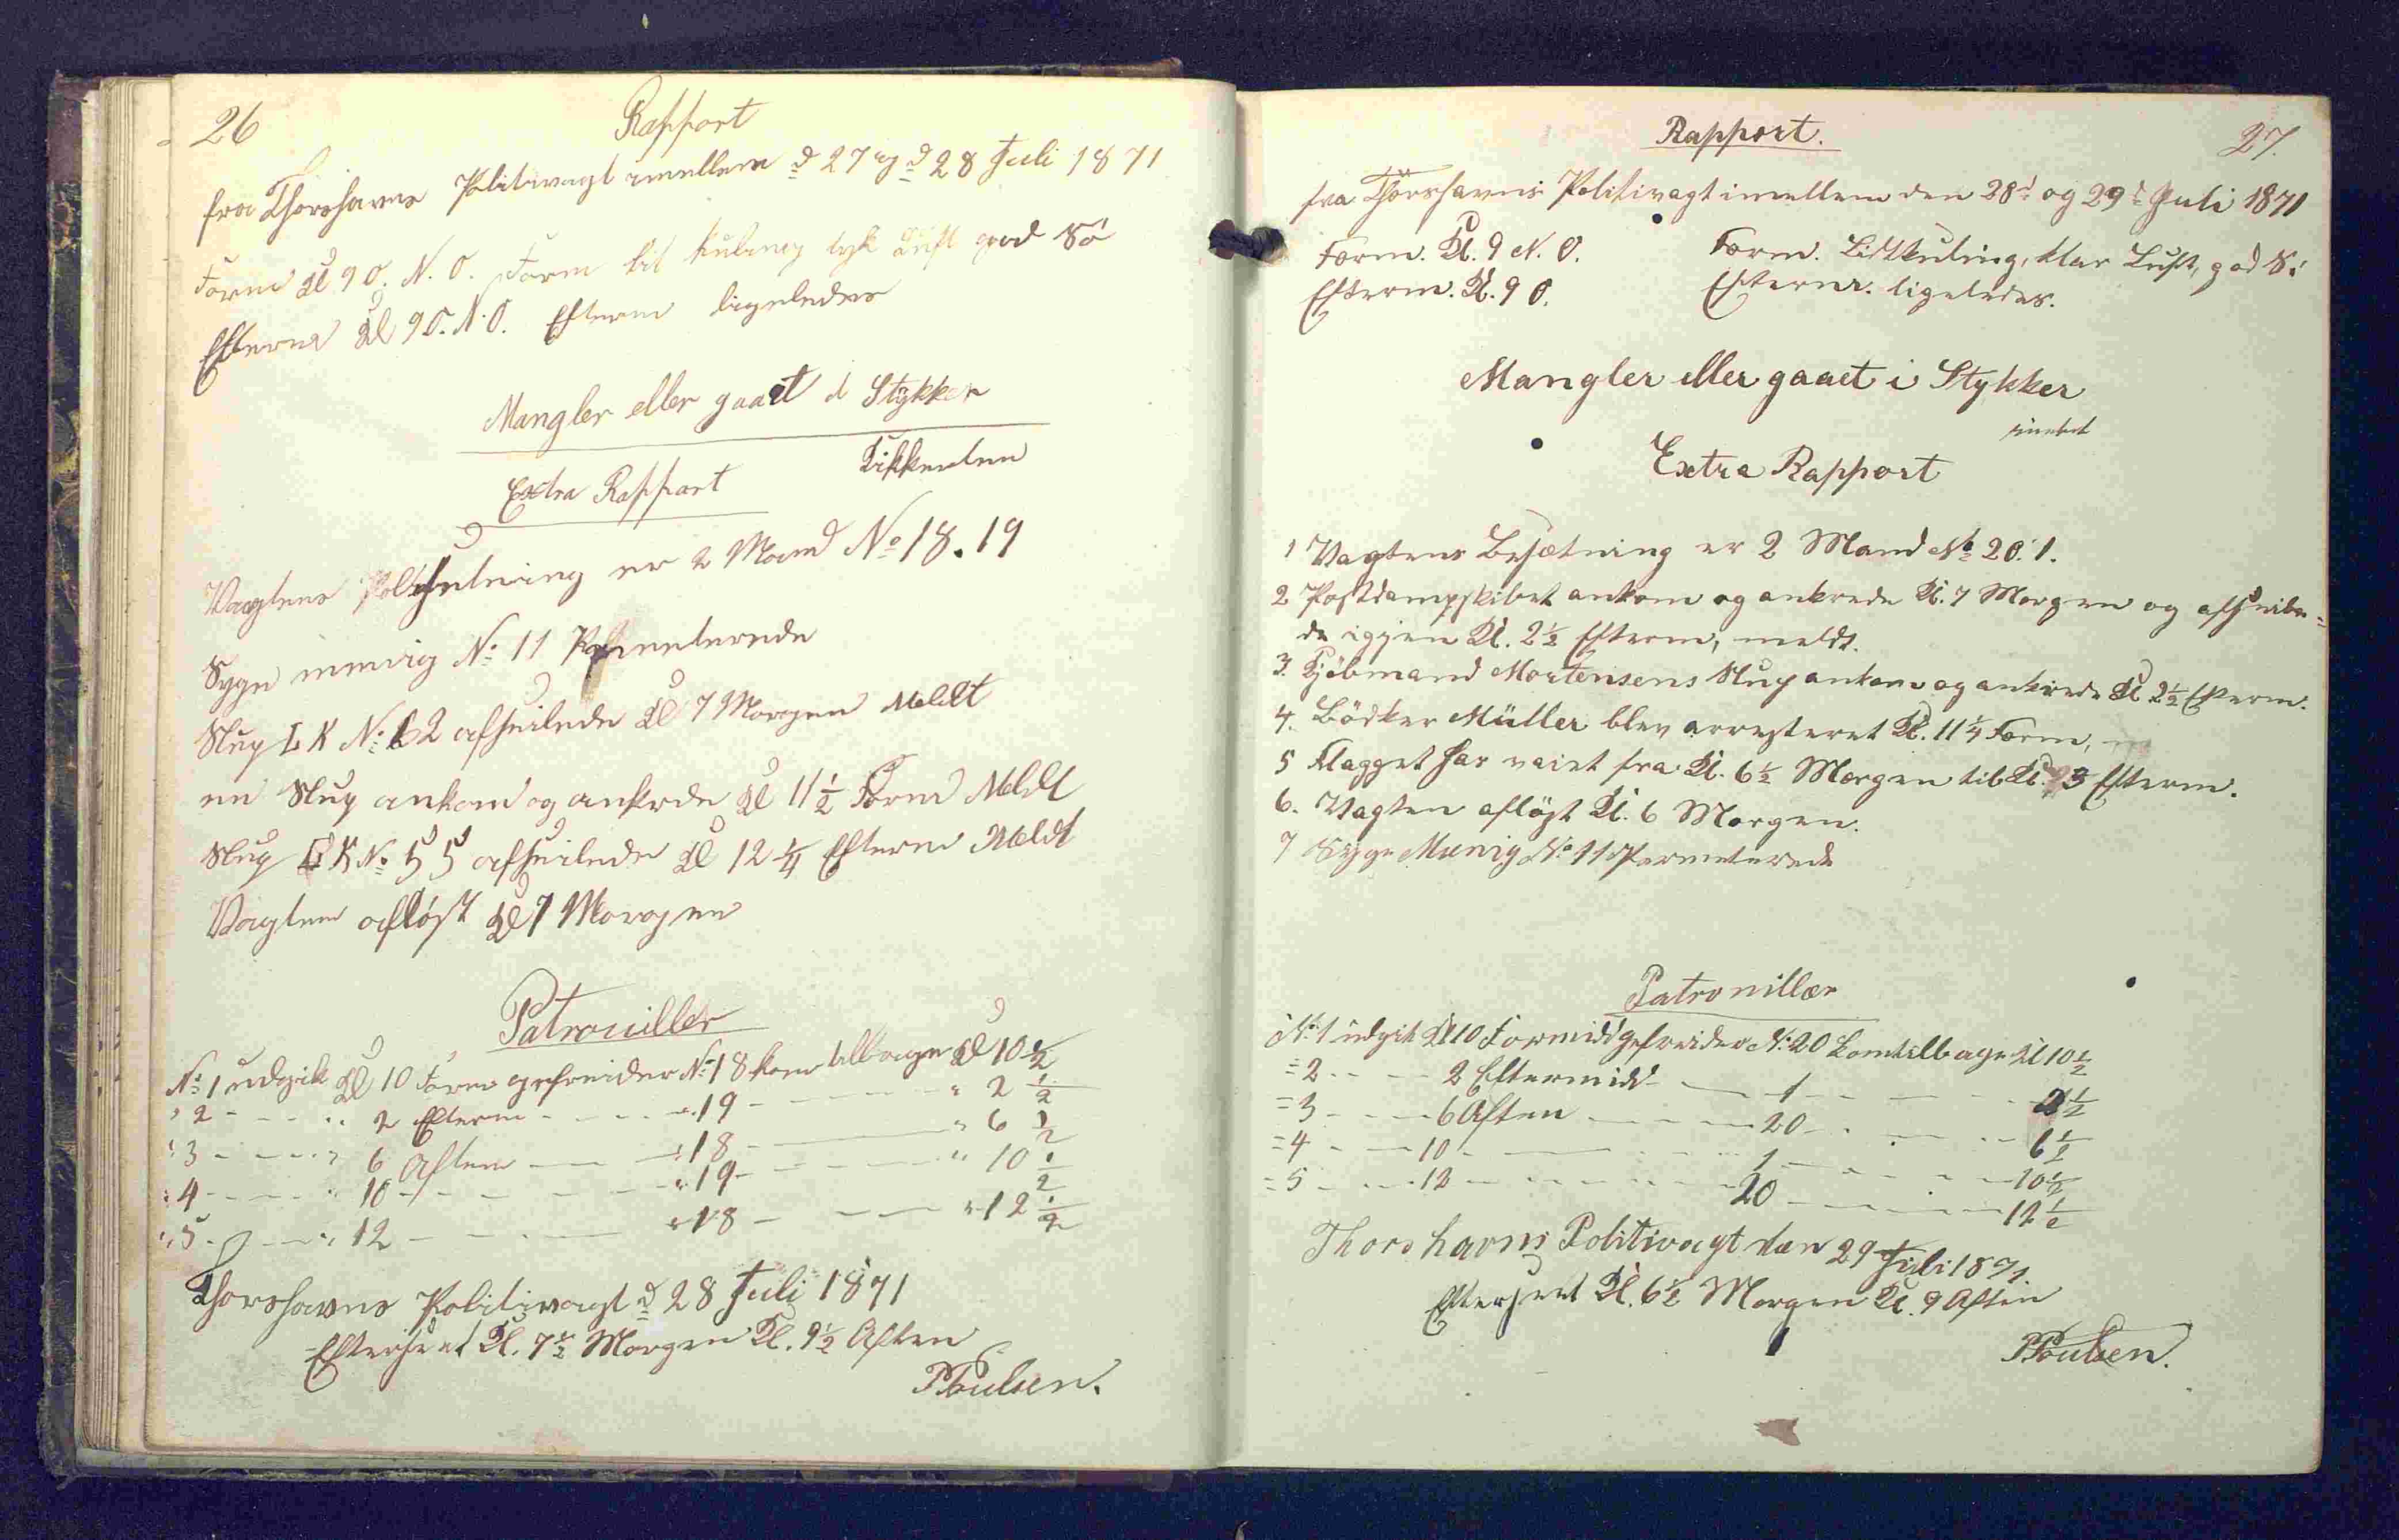 26
Rapport
fra Thorshavns Politivagt imellem d 27 og d 28 Juli 1871
Form Kl 9 O. N. O. Form lit kuling tyk Luft god Sö
Efterm Kl 9 O. N. O. Efterm ligeledes
Mangler eller gaaet i Stykker
Kikkerten
Extra Rapport
Vagtens er 2 Mand No 18. 19
Syge menig No 11 Permeterede
Slup L K No 62 afseilede Kl 7 Morgen Meldt
en Slup ankom og ankrede Kl 11 1/2 Form Meldt
Slup L K No 55 afseilede Kl 12 1/4 Efterm Meldt
Vagten aflöst Kl 7 Morgen
Patrouiller
No 1 udgik Kl 10 Form gefreider No 18 kom tilbage Kl 10 1/2
" 2 - - - " 2 Efterm - - - " 19 - - - " 2 1/2
" 3 - - - " 6 Aften - - " 18 - - - " 6 1/2
" 4 - - - " 10 - - - - " 19 - - - " 10 1/2
" 5 - - - " 12 - - - " 18 - - - " 12 1/2
Thorshavns Politivagt d 28 Juli 1871
Efterseet Kl. 7 1/2 Morgen Kl. 9 1/2 Aften
PPoulsen.
Rapport.
27.
fra Thorshavns Politivagt imellem den 28d og 29d Juli 1871
Form. Kl. 9 N. O. Form. Lidtkuling, klar Luft, god Sö
Efterm. Kl. 9 O. Efterm. ligeledes.
Mangler eller gaaet i Stykker
intet
Extra Rapport
1 Vagtens Besætning er 2 Mand No 20. 1.
2 Postdampskibet ankom og ankrede Kl. 7 Morgen og afseile=
de igjen Kl. 2 1/2 Efterm, meldt.
3. Kjöbmand Mortensens Slup ankom og ankrede Kl 2 1/2 Efterm.
4. Bödker Müller blev arresteret Kl. 11 1/4 Form,
5 Flagget har vaiet fra Kl. 6 1/2 Morgen til Kl. 3 Efterm.
6. Vagten aflöst Kl. 6 Morgen.
7 Syge Menig No 11 Permeterede
Patrouiller
No 1 udgik Kl 10 Formidd gefreider No 20 kom tilbage Kl 10 1/2
= 2 - - - 2 Eftermidd - - 1 - - - 2 1/2
= 3 - - - 6 Aften - - - 20 - - - 6 1/2
= 4 - - 10 - - - 1 - - - 10 1/2
= 5 - - - 12 - - - 20 - - - 12 1/2
Thorshavns Politivagt den 29 Juli 1871.
Efterseet Kl. 6 1/2 Morgen Kl. 9 Aften
PPoulsen.